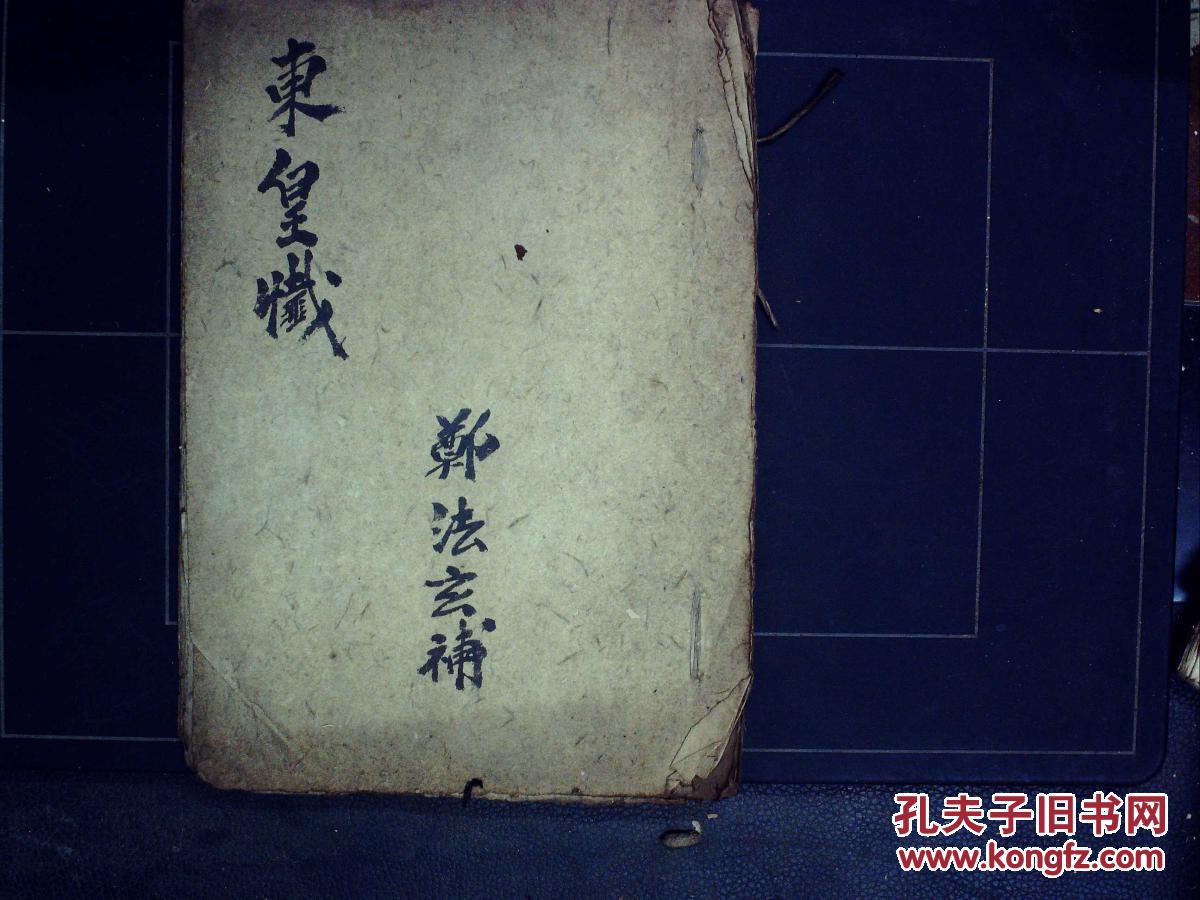 東皇懺
鄭法玄補
孔夫子旧书网
www.kongfz.com